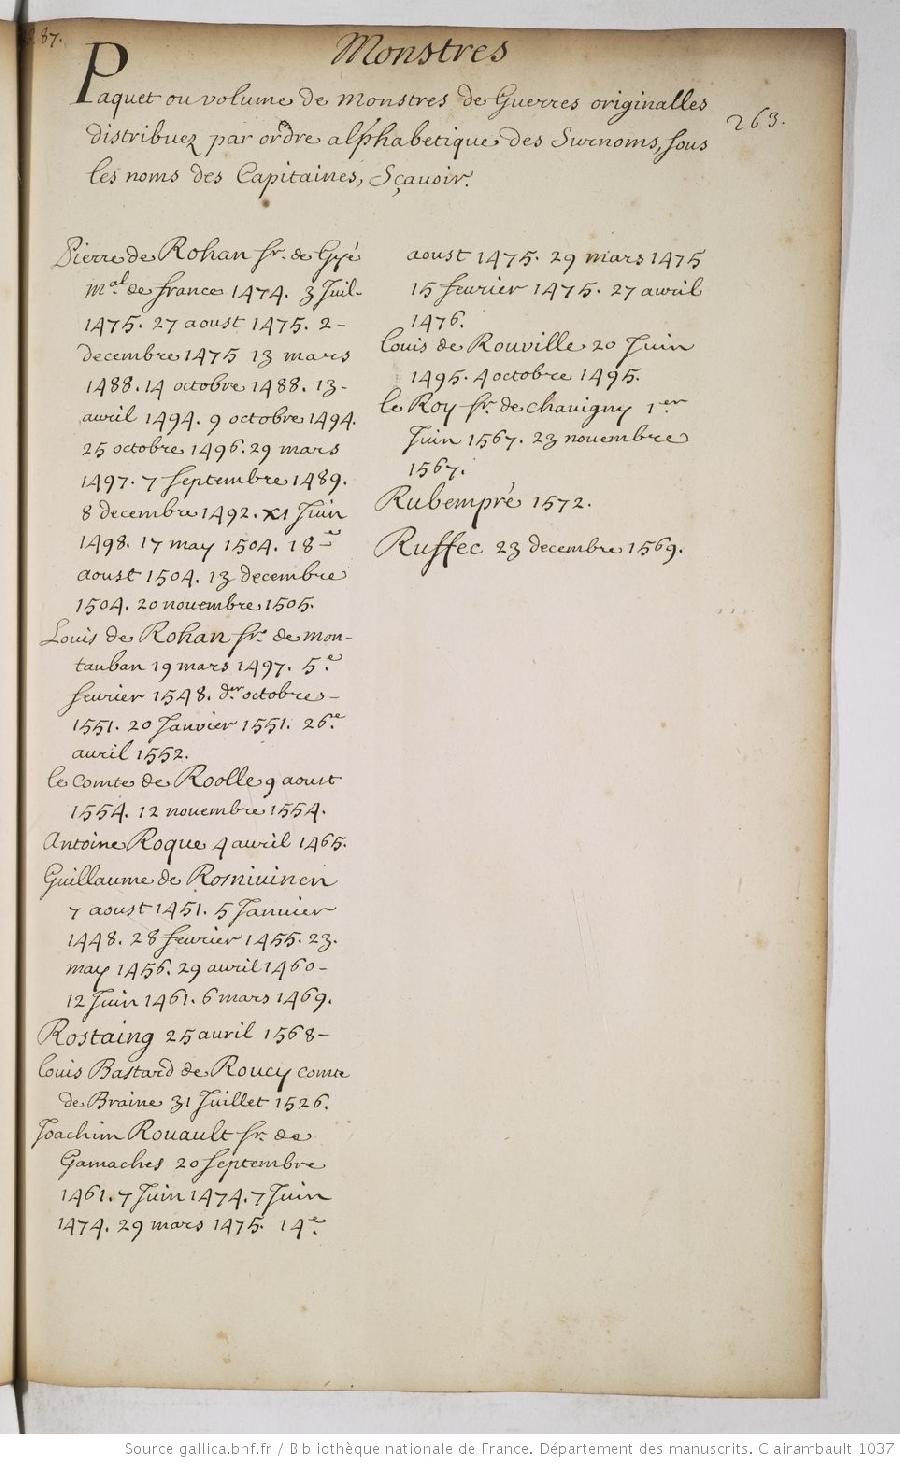 287.
Monstres
Paquet ou volume de monstres de Guerres originalles
263.
distribuez par ordre alphabetique des Surnoms, sous
les noms des Capitaines, Sçavoir.
Pierre de Rohan sr. de Gyé
mal. de france 1474. 3 Juil-
1475. 27 aoust 1475. 2-
decembre 1475 13 mars
1488. 14 octobre 1488. 13-
avril 1494. 9 octobre 1494.
25 octobre 1496. 29 mars
1497. 7 septembre 1489.
8 decembre 1492. XI Juin
1498. 17 may 1504. 18e
aoust 1504. 13 decembre
1504. 20 novembre 1505.
Louis de Rohan sr. de mon-
tauban 19 mars 1497. 5e
fevrier 1548. der. octobre-
1551. 20 Janvier 1551. 26e
avril 1552.
le comte de Roolle 9 aoust
1554. 12 novembre 1554.
Antoine Roque 4 avril 1465.
Guillaume de Rosnivinen
7 aoust 1451. 5 Janvier
1448. 28 fevrier 1455. 23.
may 1456. 29 avril 1460-
12 Juin 1461. 6 mars 1469.
Rostaing 25 avril 1568-
Louis Bastard de Roucy comte
de Braine 31 Juillet 1526.
Joachim Rouault sr. de
Gamaches 20 septembre
1461. 7 Juin 1474. 7 Juin
1474. 29 mars 1475. 14e
aoust 1475. 29 mars 1475
15 fevrier 1475. 27 avril
1476.
Louis de Rouville 20 Juin
1495. 4 octobre 1495.
le Roy sr. de chavigny 1er
Juin 1567. 23 novembre
1567.
Rubempré 1572.
Ruffec 23 decembre 1569.
Source gallica.bnf.fr / Bibliothèque nationale de France. Département des manuscrits. Clairambault 1037